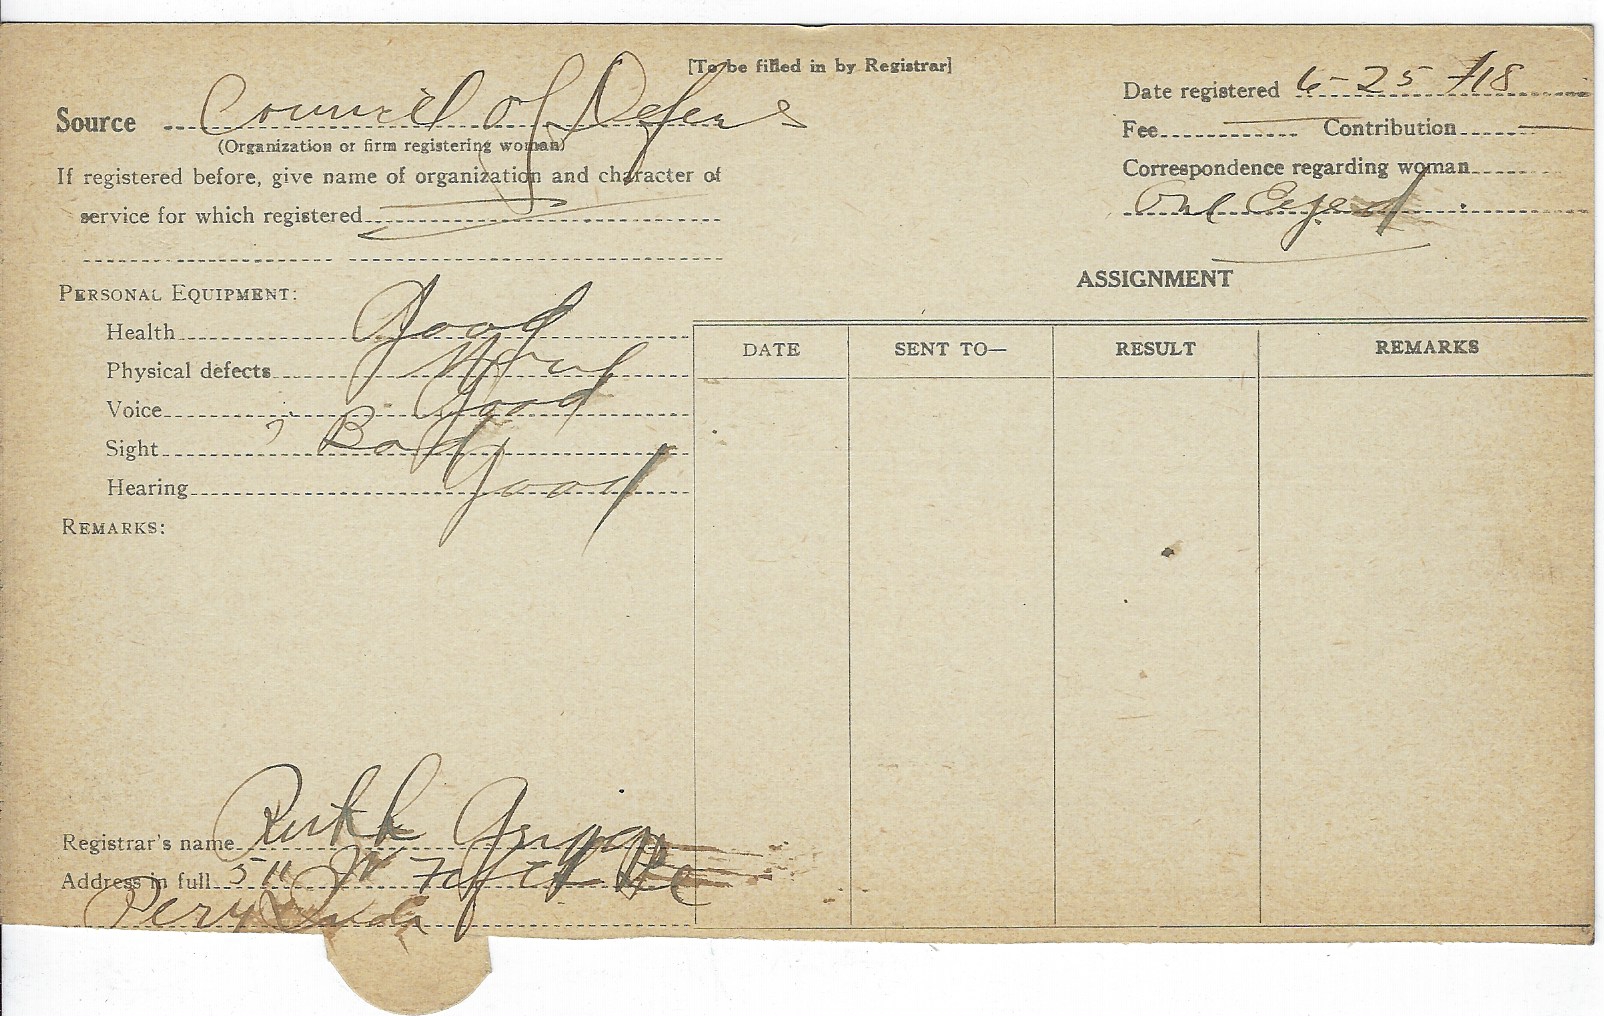 [To be filled in by Registrar]
Source Council of Defens
(Organization or firm registering woman)
If registered before, give name of organization and character of
service for which registered
Date registered 6-25-/18
Fee Contribution
Correspondence regarding woman
One Eyed
ASSIGNMENT
PERSONAL EQUIPMENT:
Health Good
Physical defects None
Voice Good
Sight Bad
Hearing Good
REMARKS:
DATE SENT TO— RESULT REMARKS
Registrar's name Ruth
Address in full 511 W
Peru Inda